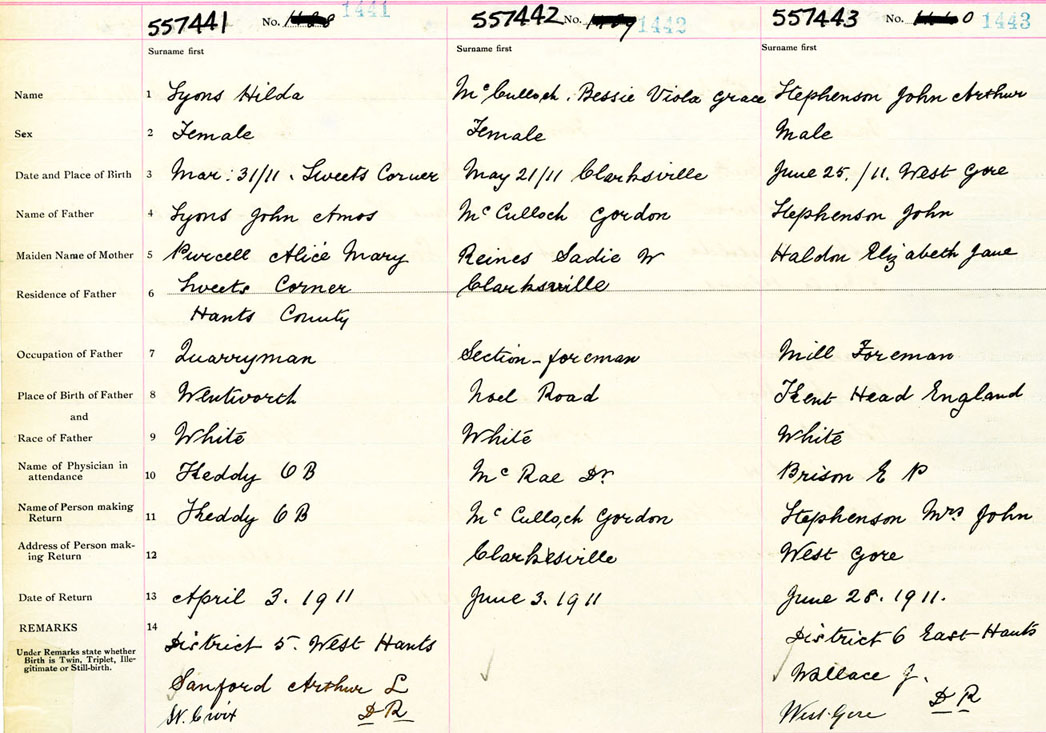 557441 No. 1441 557442 No. 1442 557443 No. 1443
Surname first Surname first Surname first
Name 1 Lyons Hilda McCulloch, Bessie Viola Grace Stephenson John Arthur
Sex 2 Female Female Male
Date and Place of Birth 3 Mar: 31/11. Sweets Corner May 21/11 Clarksville June 25./11. West Gore
Name of Father 4 Lyons John Amos McCulloch Gordon Stephenson John
Maiden Name of Mother 5 Purcell Alice Mary Reines Sadie W Haldon Elizabeth Jane
Residence of Father 6 Sweets Corner Clarksville
Hants County
Occupation of Father 7 Quarryman Section-foreman Mill Foreman
Place of Birth of Father 8 Wentworth Noel Road Head England
and
Race of Father 9 White White White
Name of Physician in
attendance 10 OB McRae Dr Brison E P
Name of Person making
Return 11 OB McCulloch Gordon Stephenson Mrs John
Address of Person mak-
ing Return 12 Clarkesville West Gore
Date of Return 13 April 3. 1911 June 3. 1911 June 28. 1911.
REMARKS 14
Under Remarks state whether
Birth is Twin, Triplet, Ille-
gitimate or Still-birth.
District 5. West Hants District 6 East Hants
Sanford Arthur L Wallace J.
St. Croix D R West Gore D R